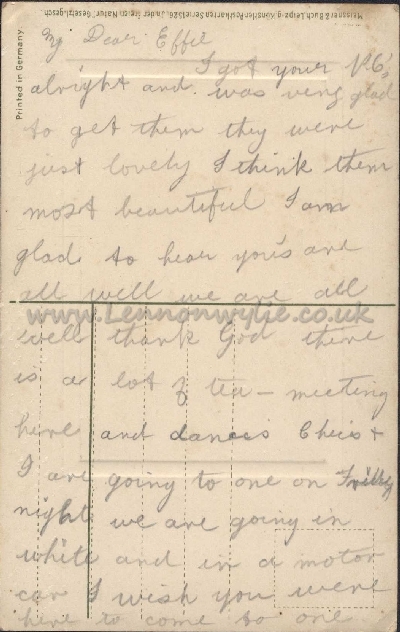 Meissner & Buch, Leipzig. Künstler-Postkarten Serie 1526 „In der freien Natur". Gesetzl. gesch.
Printed in Germany
My Dear Effel
I got your P.C's
alright and was very glad
to get them they were
just lovely I think them
most beautiful I am
glad to hear you's are
all well we are all
www.Lennonwylie.co.uk
well thank God there
is a lot of tea-meeting
here and dances Chris &
I are going to one on Friday
night we are going in
white and in a motor
car I wish you were
here to come to one